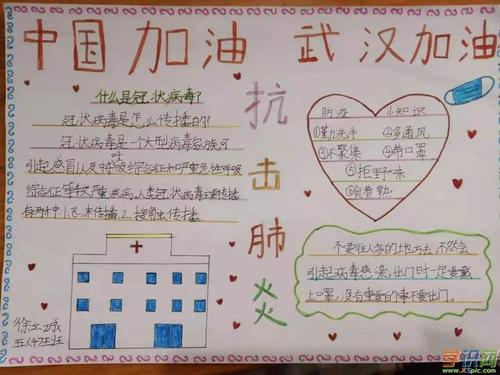 中国加油 武汉加油
抗击肺炎
什么是冠状病毒?
冠状病毒是怎么传播的?
冠状病毒是一个大型病毒家族可
引起感冒以及呼吸综合征和严重急性呼吸
综合征等较严重疾病,人类冠状病毒主要传播
有两种1.飞沫传播,2.接触传播
防治 小知识
①勤洗手 ②多通风
③不聚集 ④带口罩
⑤拒野味
⑥食煮熟
不要往人多的地方去,不然会
引起病毒感染,出门时一定要戴
上口罩,没有重要的事不要出门。
五(4)班
学识网
www.Xspic.com